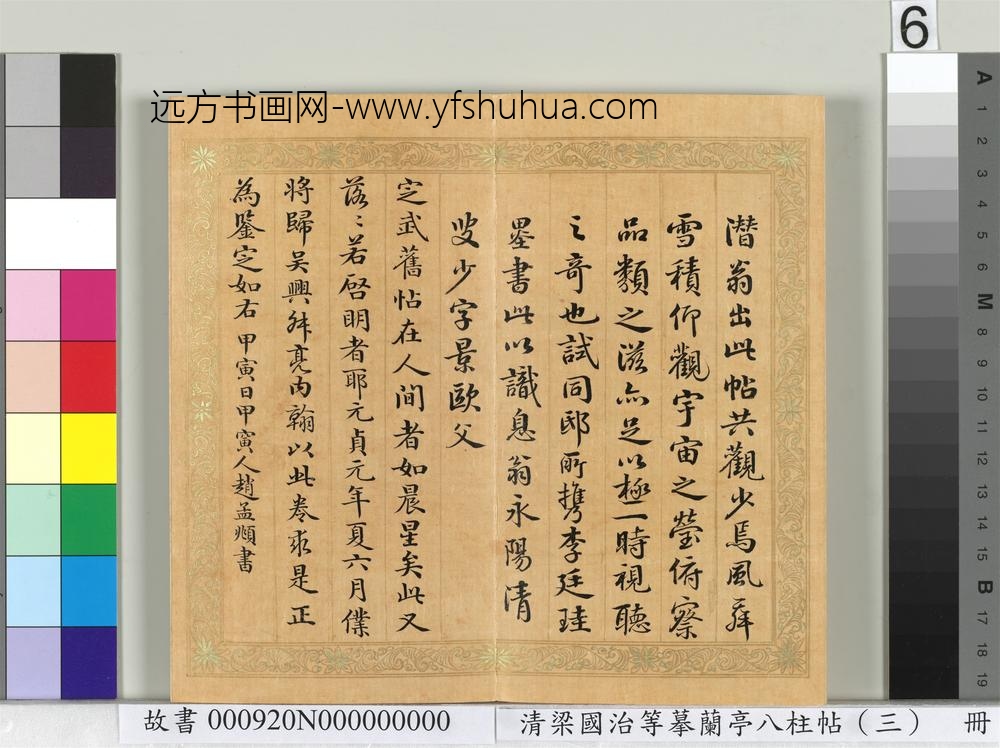 6
远方书画网-www.yfshuhua.com
潛翁出此帖共觀少焉風舞
雪積仰觀宇宙之瑩俯察
品類之滋亦足以極一時視聽
之奇也試同邸所攜李廷珪
墨書此以識息翁永陽清
叟少字景歐父
定武舊帖在人间者如晨星矣此又
落〻若啓明者耶元貞元年夏六月僕
將歸吴興舜亮内翰以此卷求是正
為鑒定如右 甲寅日甲寅人趙孟頫書
A 1 2 3 4 5 6 M 8 9 10 11 12 13 14 15 B 17 18 19
故書 000920N000000000
清梁國治等摹蘭亭八柱帖（三） 冊